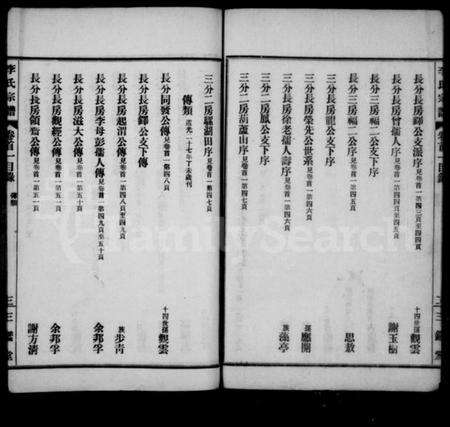 李氏宗譜 卷首一目錄
長分長房錦公支派序 見卷首一第四三頁至四四頁 十四世孫觀雲
長分長房曾孺人序 見卷首一第四四頁至四五頁 謝玉樹
三分三房福二公支下序
三分三房福二公支下序 見卷首一第四五頁 思敖
長分長房龍公支下序
長分長房榮先公世系 見卷首一第四六頁 孫應開
長分長房徐老孺人壽序 見卷首一第四六頁 族藻亭
三分二房鳳公支下序
三分二房葫蘆山序 見卷首一第四七頁
三分二房驢湖田序 見卷首一第四七頁
傳類 道光二十七年丁未歲刊
長分同賢公傳 見卷首一第四八頁 十四世孫觀雲
長分長房鐸公支下傳
長分長房起渭公傳 見卷首一第四八頁至四九頁 族步青
長分長房李母彭孺人傳 見卷首一第四九頁至五十頁 余邦孚
長分長房滋大公傳 見卷首一第五十頁
長分長房觀經公傳 見卷首一第五十頁 余邦孚
長分長房領喬公傳 見卷首一第五一頁 謝方清
李氏宗譜 卷首一目錄 傳類 三三 堂
FamilySearch